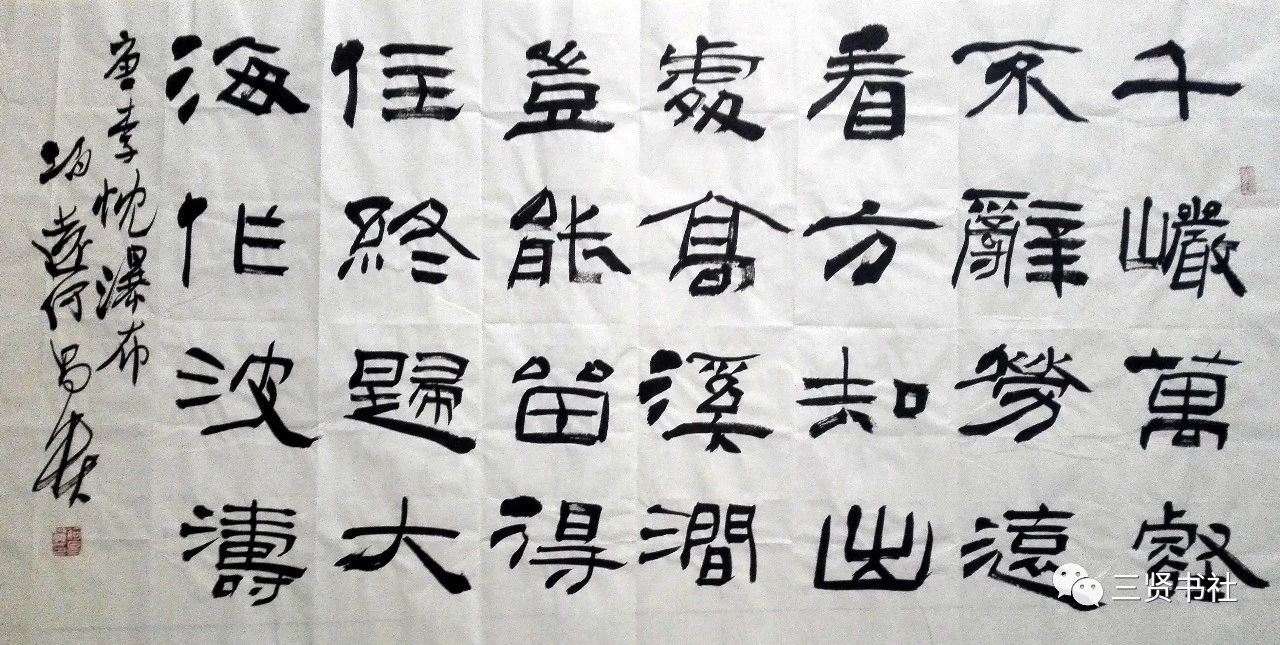 千巖萬壑
不辭勞遠
看方知出
處高溪澗
豈能留得
住終歸大
海作波濤
唐李忱瀑布
遠何昌
三贤书社